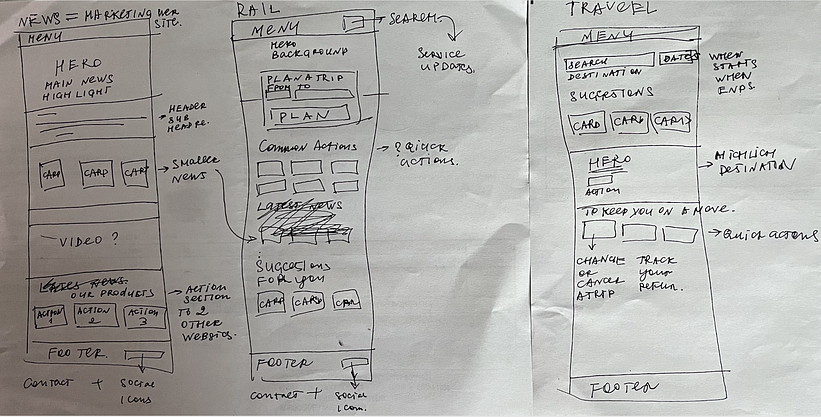 NEWS = MARKETING WEB SITE.
MENU
HERO
MAIN NEWS
HIGHLIGHT
HEADER
SUB
HEADRE.
CARD CARD CARD
SMALLER
NEWS
VIDEO ?
LATES NEWS.
OUR PRODUCTS
ACTION 1
ACTION 2
ACTION 3
ACTION
SECTION
TO 2
OTHER
WEBSITES.
FOOTER.
CONTACT + SOCIAL
ICONS
RAIL
MENU
SEARCH.
SERVICE
UPDATES.
HERO
BACKGROUND
PLAN A TRIP
FROM TO
PLAN
COMMON ACTIONS
QUICK
ACTIONS.
LATEST NEWS
SUGGESTIONS
FOR YOU
CARD CARD CARD
FOOTER
CONTACT + SOCIAL
ICON.
TRAVEL
MENU
SEARCH DATES
DESTINATION
WHEN
STARTS
WHEN
ENDS.
SUGGESTIONS
CARD CARD CARD
HERO
ACTION
DESTINATION
TO KEEP YOU ON A MOVE.
QUICK ACTIONS
CHANGE
OR
CANCEL
A TRIP
TRACK
YOUR
RETURN.
FOOTER